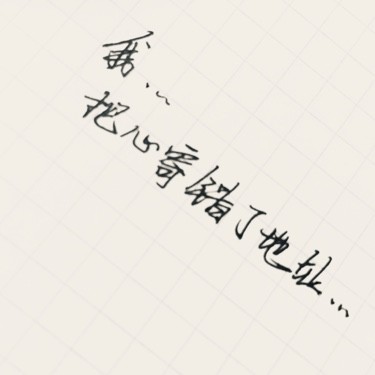 我...
把心寄错了地址...